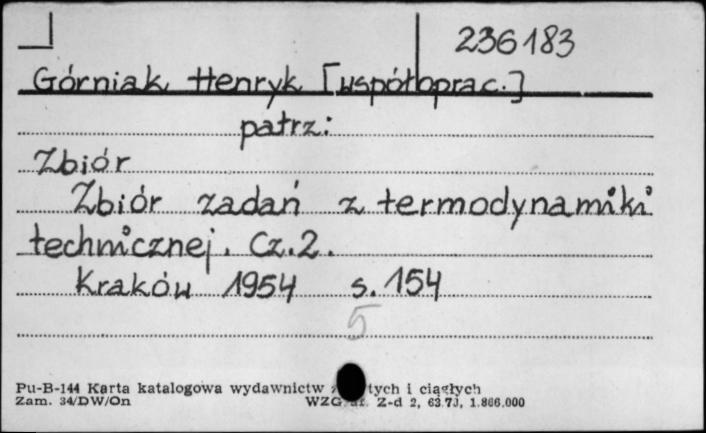 236183
Górniak Henryk [współoprac.]
patrz:
Zbiór
Zbiór zadań z termodynamiki
technicznej. Cz.2.
Kraków 1954 s. 154
5
Pu-B-144 Karta katalogowa wydawnictw tych i ciągłych
Zam. 34/DW/On WZG Z-d 2, 63.73, 1.866.000